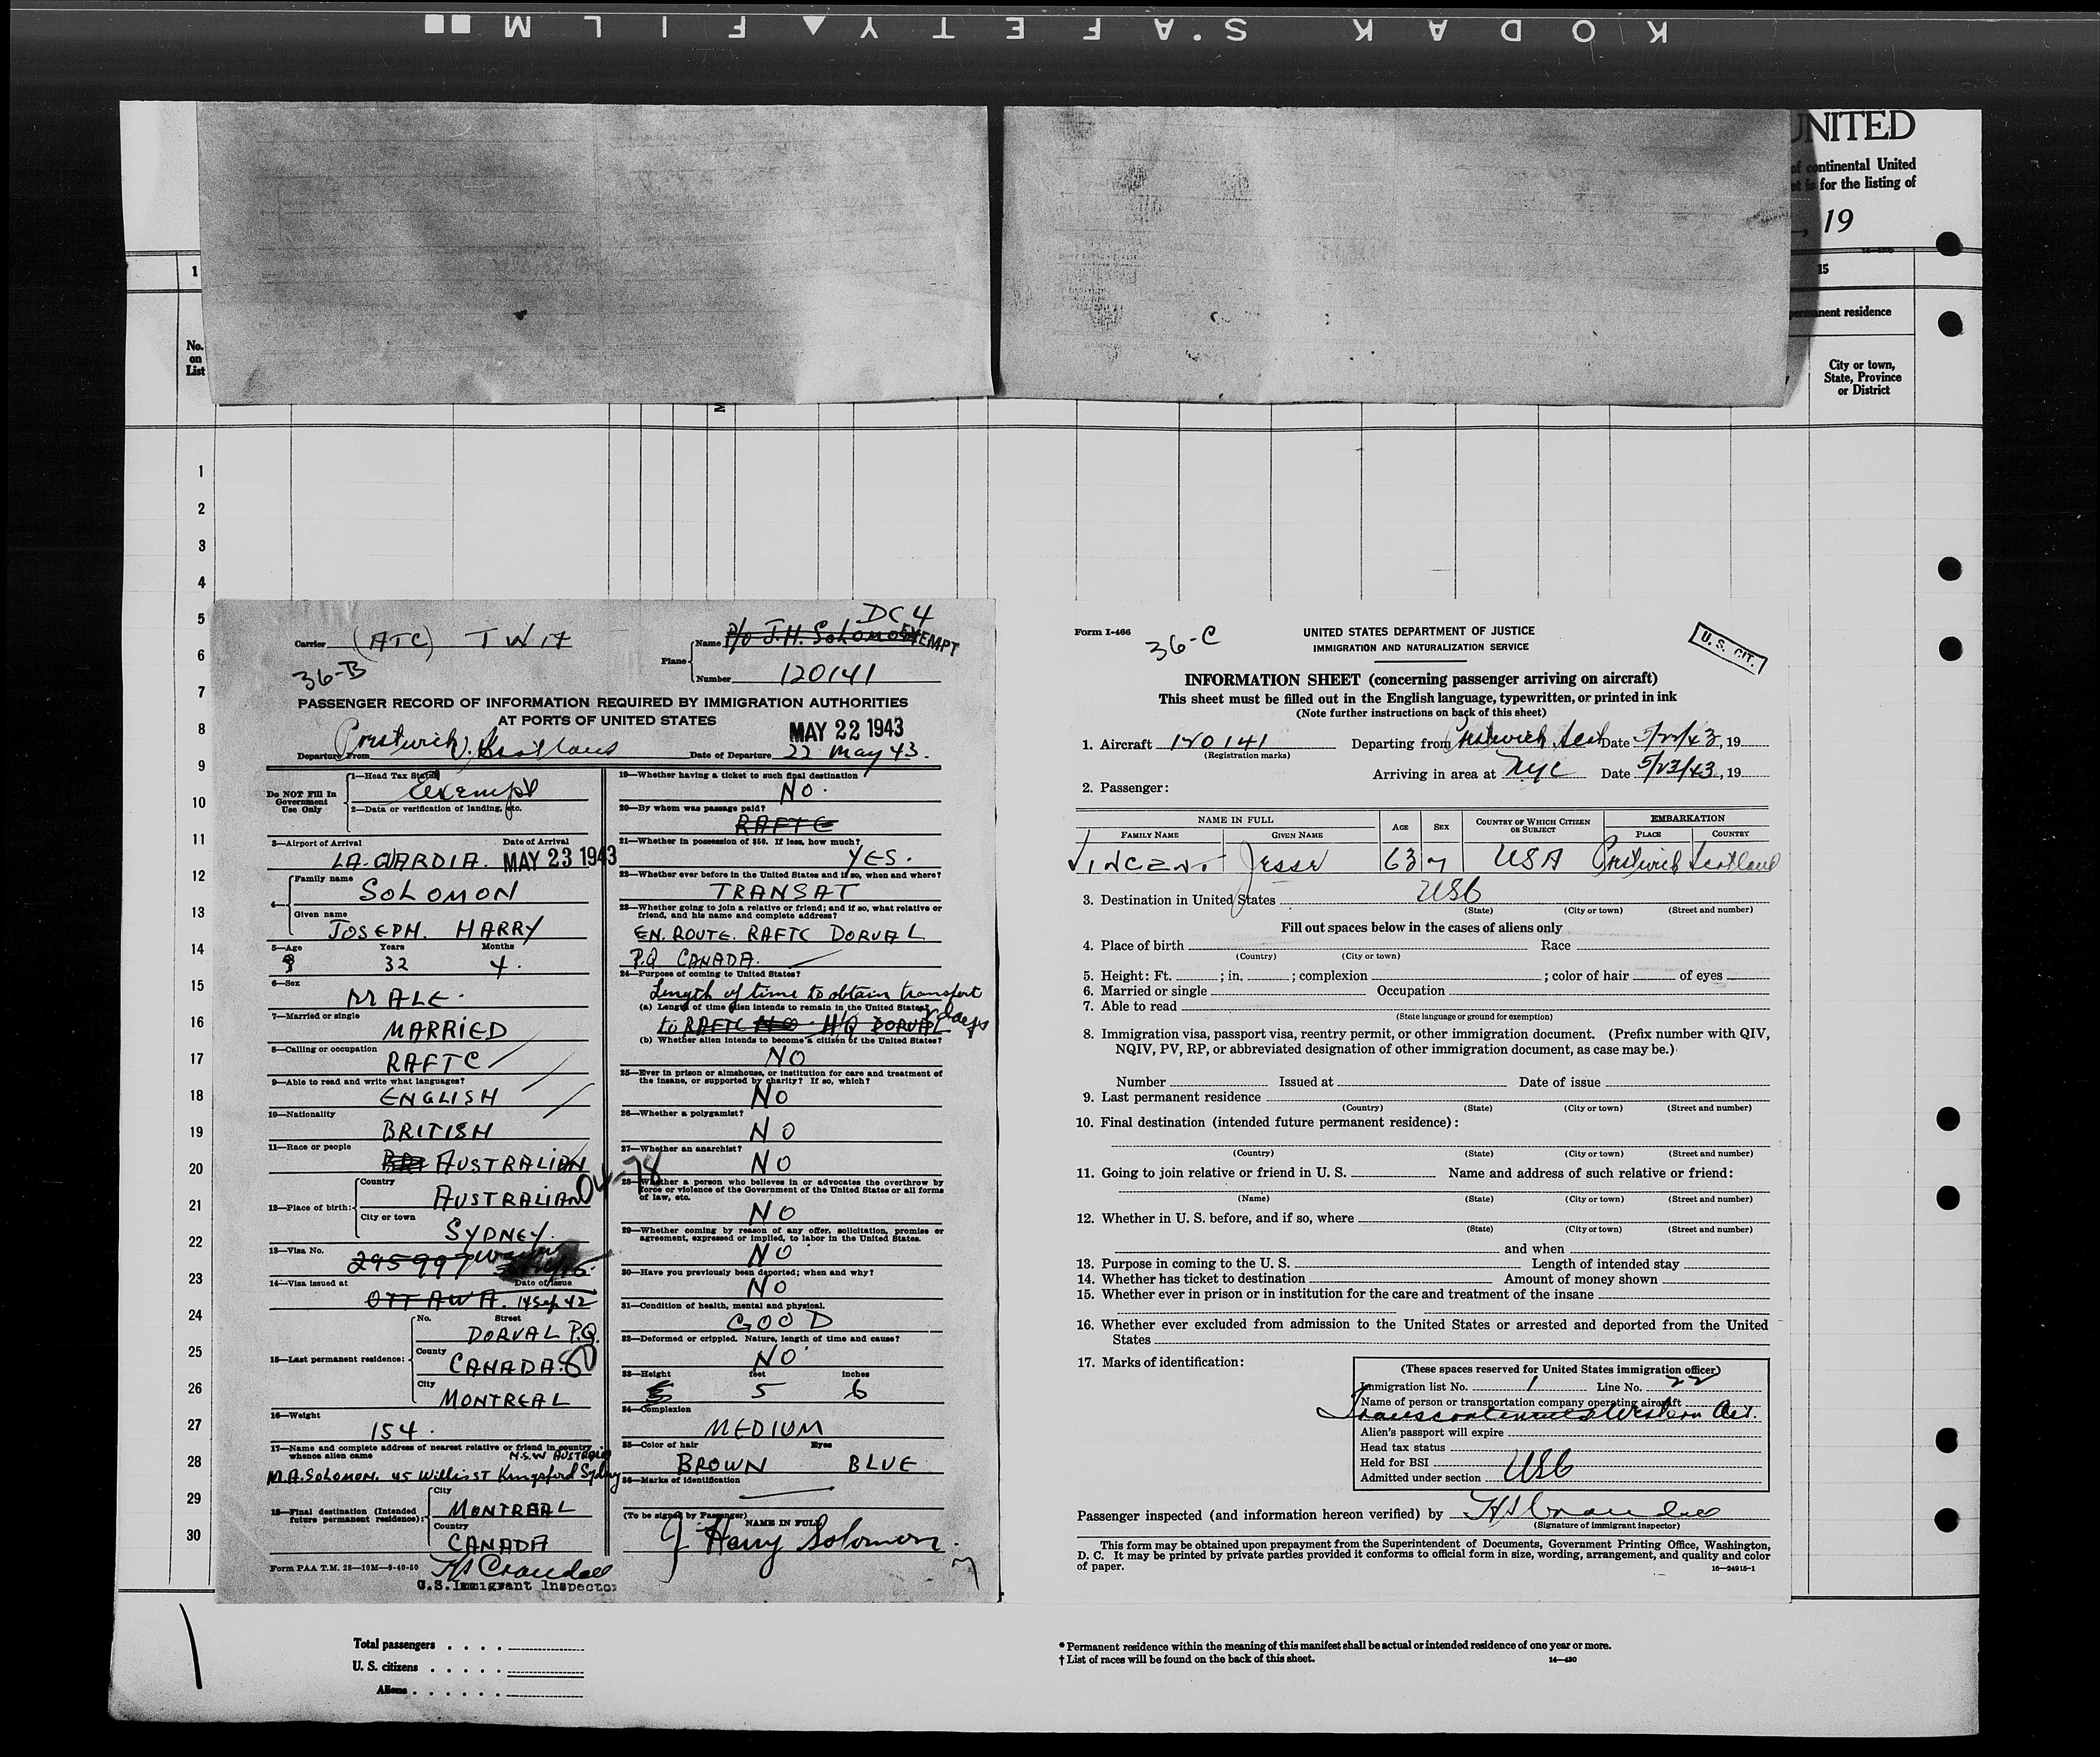 KODAK S'AFETY FILM
UNITED
of continental United
et is for the listing of
, 19
1
15
permanent residence
No.
on
List
City or town,
State, Province
or District
M
1
2
3
4
5
6
7
8
9
10
11
12
13
14
15
16
17
18
19
20
21
22
23
24
25
26
27
28
29
30
DC 4
Carrier (ATC) TWA
Plane
Name P/O J.H. Solomon EXEMPT
36-B
Number 120141
PASSENGER RECORD OF INFORMATION REQUIRED BY IMMIGRATION AUTHORITIES
AT PORTS OF UNITED STATES
MAY 22 1943
Departure From Prestwick, Scotland Date of Departure 22 May 43.
Do NOT Fill In
Government
Use Only
1—Head Tax Status
exempt
2—Data or verification of landing, etc.
3—Airport of Arrival Date of Arrival
LA-GUARDIA. MAY 23 1943
4— Family name
SOLOMON
Given name
JOSEPH. HARRY
5—Age Years Months
32 4.
6—Sex
MALE.
7—Married or single
MARRIED
8—Calling or occupation
RAFTC
9—Able to read and write what languages?
ENGLISH
10—Nationality
BRITISH
11—Race or people
AUSTRALIAN
12—Place of birth: Country
AUSTRALIAN 04-78
City or town
SYDNEY.
13—Visa No.
295997
14—Visa issued at Date of issue
OTTAWA. 14 Sep 42
15—Last permanent residence:
No. Street
DORVAL P.Q.
County
CANADA. 80
City
MONTREAL
16—Weight
154.
17—Name and complete address of nearest relative or friend in country
whence alien came N.S.W AUSTRALIA
M.A. SOLOMON. 45 Willis ST Kingsford Sydney
18—Final destination (Intended
future permanent residence):
City
MONTREAL
Country
CANADA
Form PAA T.M. 28—10M—9-40-50 HS Crandall
U.S. Immigrant Inspector
19—Whether having a ticket to such final destination
NO.
20—By whom was passage paid?
RAFTC
21—Whether in possession of $50. If less, how much?
YES.
22—Whether ever before in the United States and if so, when and where?
TRANSAT
23—Whether going to join a relative or friend; and if so, what relative or
friend, and his name and complete address?
EN. ROUTE. RAFTC DORVAL
P.Q CANADA.
24—Purpose of coming to United States?
Length of time to obtain transport
(a) Length of time alien intends to remain in the United States?
to RAFTC NO H/Q DORVAL days
(b) Whether alien intends to become a citizen of the United States?
NO
25—Ever in prison or almshouse, or institution for care and treatment of
the insane, or supported by charity? If so, which?
NO
26—Whether a polygamist?
NO
27—Whether an anarchist?
NO
28—Whether a person who believes in or advocates the overthrow by
force or violence of the Government of the United States or all forms
of law, etc.
NO
29—Whether coming by reason of any offer, solicitation, promise or
agreement, expressed or implied, to labor in the United States.
NO
30—Have you previously been deported; when and why?
NO
31—Condition of health, mental and physical.
GOOD
32—Deformed or crippled. Nature, length of time and cause?
NO
33—Height feet inches
5 6
34—Complexion
MEDIUM
35—Color of hair Eyes
BROWN BLUE
36—Marks of identification
(To be signed by Passenger) NAME IN FULL
J Harry Solomon.
Form I-466
36-C
UNITED STATES DEPARTMENT OF JUSTICE
IMMIGRATION AND NATURALIZATION SERVICE
U. S. CIT.
INFORMATION SHEET (concerning passenger arriving on aircraft)
This sheet must be filled out in the English language, typewritten, or printed in ink
(Note further instructions on back of this sheet)
1. Aircraft 120141 Departing from Prestwick Scot Date 5/22/43, 19
(Registration marks)
Arriving in area at NYC Date 5/23/43, 19
2. Passenger:
NAME IN FULL AGE SEX COUNTRY OF WHICH CITIZEN OR SUBJECT EMBARKATION
FAMILY NAME GIVEN NAME PLACE COUNTRY
VINCENT Jesse 63 M USA Prestwick Scotland
3. Destination in United States USC
(State) (City or town) (Street and number)
Fill out spaces below in the cases of aliens only
4. Place of birth Race
(Country) (City or town)
5. Height: Ft. ; in. ; complexion ; color of hair of eyes
6. Married or single Occupation
7. Able to read
(State language or ground for exemption)
8. Immigration visa, passport visa, reentry permit, or other immigration document. (Prefix number with QIV,
NQIV, PV, RP, or abbreviated designation of other immigration document, as case may be.)
Number Issued at Date of issue
9. Last permanent residence
(Country) (State) (City or town) (Street and number)
10. Final destination (intended future permanent residence):
(Country) (State) (City or town) (Street and number)
11. Going to join relative or friend in U. S. Name and address of such relative or friend:
(Name) (State) (City or town) (Street and number)
12. Whether in U. S. before, and if so, where
(State) (City or town) (Street and number)
and when
13. Purpose in coming to the U. S. Length of intended stay
14. Whether has ticket to destination Amount of money shown
15. Whether ever in prison or in institution for the care and treatment of the insane
16. Whether ever excluded from admission to the United States or arrested and deported from the United
States
17. Marks of identification:
(These spaces reserved for United States immigration officer)
Immigration list No. 1 Line No. 22
Name of person or transportation company operating aircraft
Transcontinental & Western Air.
Alien's passport will expire
Head tax status
Held for BSI
Admitted under section USC
Passenger inspected (and information hereon verified) by HS Crandall
(Signature of immigrant inspector)
This form may be obtained upon prepayment from the Superintendent of Documents, Government Printing Office, Washington,
D. C. It may be printed by private parties provided it conforms to official form in size, wording, arrangement, and quality and color
of paper. 16—24915-1
Total passengers . . . .
U. S. citizens . . . . .
Aliens . . . . . .
* Permanent residence within the meaning of this manifest shall be actual or intended residence of one year or more.
† List of races will be found on the back of this sheet. 14—430